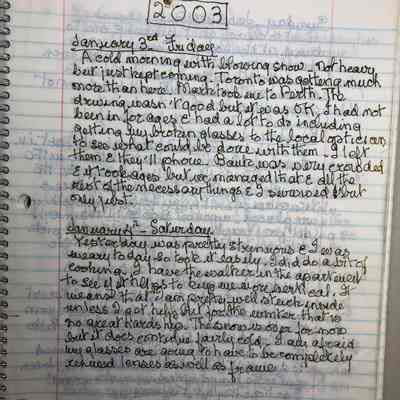 2003
January 3rd Friday
A cold morning with blowing snow. Not heavy
but just kept coming. Toronto was getting much
more than here. Mark took me to Perth. The
driving wasn't good but it was OK. I had not
been in for ages & had a lot to do including
getting my broken glasses to the local optician
to see what could be done with them. I left
them & they'll phone. Bank was very crowded
& it took ages but we managed that & all the
rest of the necessary things & I survived but
only just.
January 4th - Saturday
Yesterday was pretty strenuous & I was
weary today so took it easily. I did do a bit of
cooking. I have the walker in the apartment
to see if it helps to keep me more vertical. It
means that I am pretty well stuck inside
unless I get help but for the winter that is
no great hardship. The snow is over for now
but it does continue fairly cold. I am afraid
my glasses are going to have to be completely
lenses as well as frame